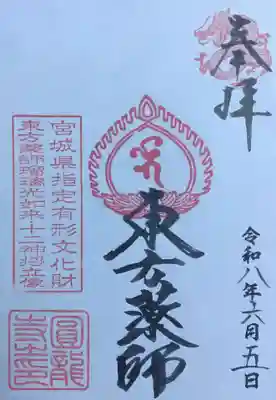 奉拝
東方薬師
令和八年六月五日
宮城県指定有形文化財
東方薬師瑠璃光如来十二神将立像
圓龍